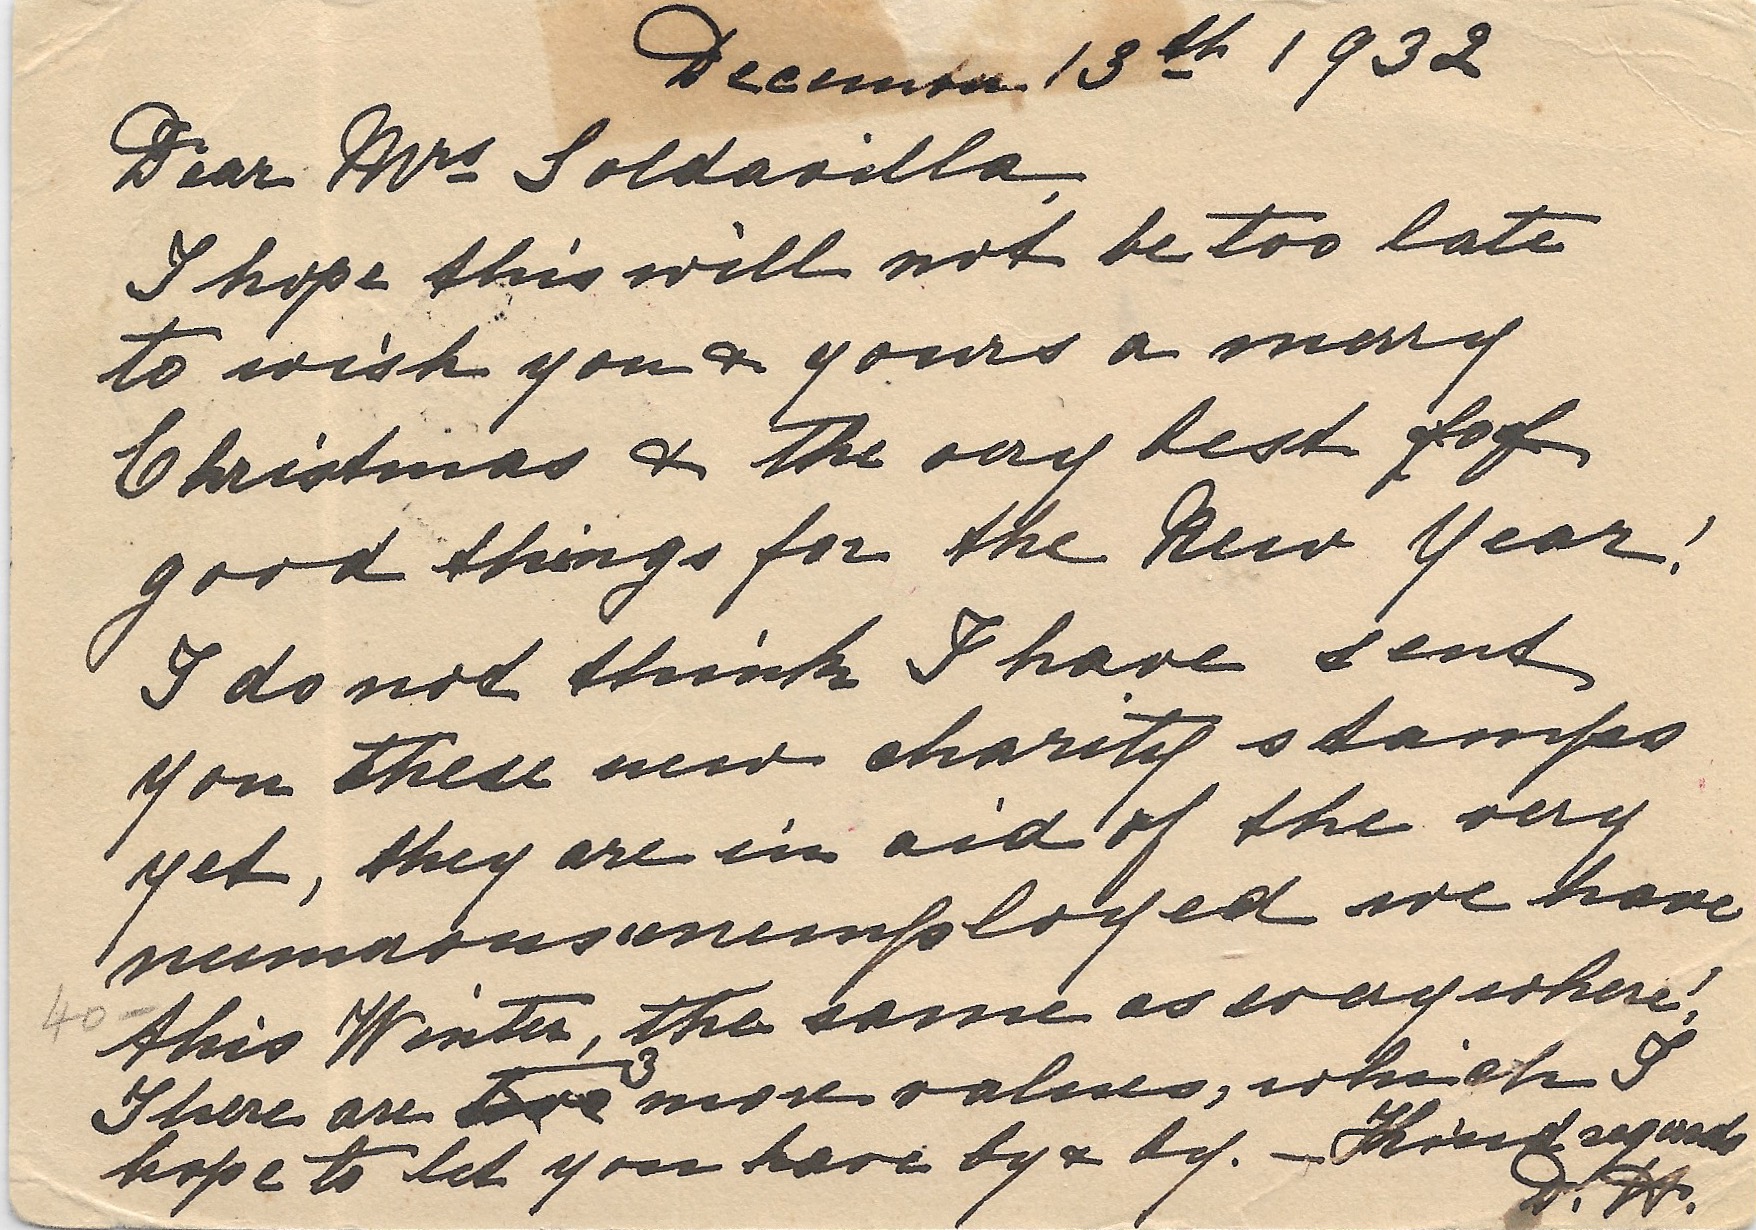 December 13th 1932
Dear Mrs Soldavilla,
I hope this will not be too late
to wish you & yours a merry
Christmas & the very best of
good things for the New Year!
I do not think I have sent
you these new charity stamps
yet, they are in aid of the very
numerous unemployed we have
this Winter, the same as everywhere!
40-
There are 3 more values, which I
hope to let you have by & by. — Kind regards
D. H.